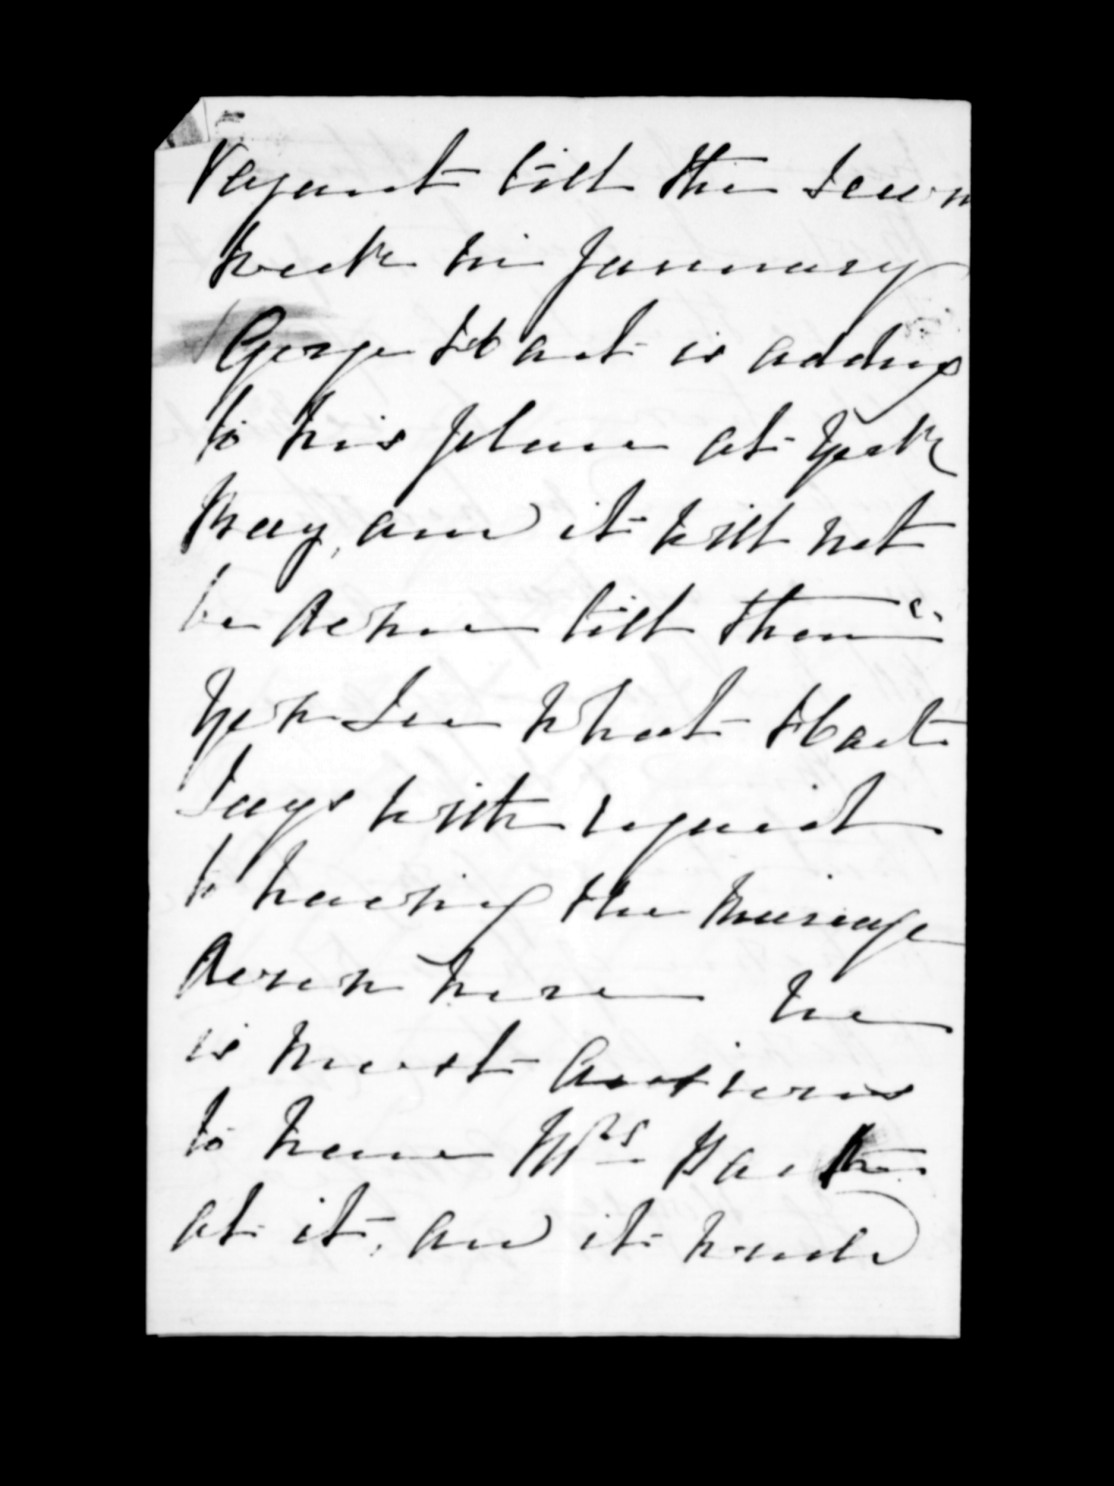 Vacant till the Secon
week in January
George Hart is adding
to his place at York
Bay, and it will not
be done till then
You See what Hart
Says with regard
to having the marriage
down here he
is most anxious
to have Mrs
at it, and it would